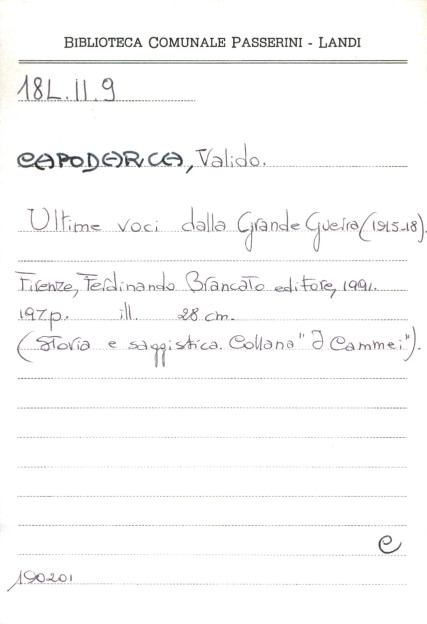 BIBLIOTECA COMUNALE PASSERINI - LANDI
18L.II.9
CAPODARCA, Valido.
Ultime voci dalla Grande Guerra (1915-18).
Firenze, Ferdinando Brancato editore, 1991.
197p. ill. 28 cm.
(Storia e saggistica. Collana "I Cammei").
e
190201